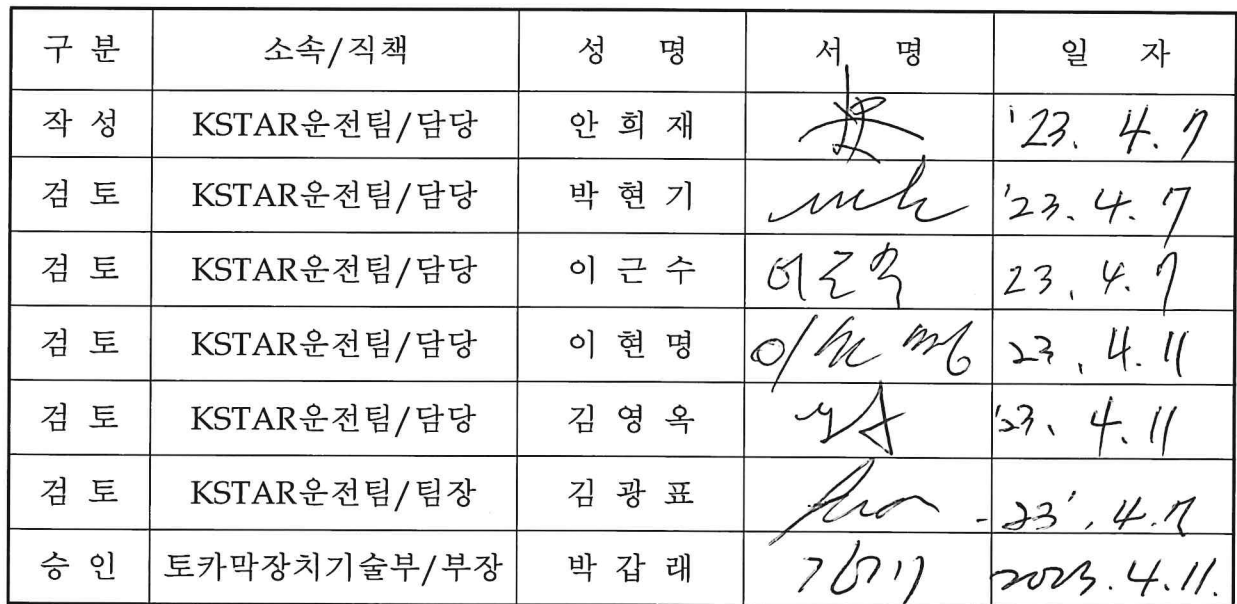 구 분 소속/직책 성 명 서 명 일 자
작 성 KSTAR운전팀/담당 안 희 재 '23. 4. 7
검 토 KSTAR운전팀/담당 박 현 기 '23. 4. 7
검 토 KSTAR운전팀/담당 이 근 수 이근수 23. 4. 7
검 토 KSTAR운전팀/담당 이 현 명 이현명 23. 4. 11
검 토 KSTAR운전팀/담당 김 영 옥 '23. 4. 11
검 토 KSTAR운전팀/팀장 김 광 표 23'. 4. 7
승 인 토카막장치기술부/부장 박 갑 래 2023. 4. 11.